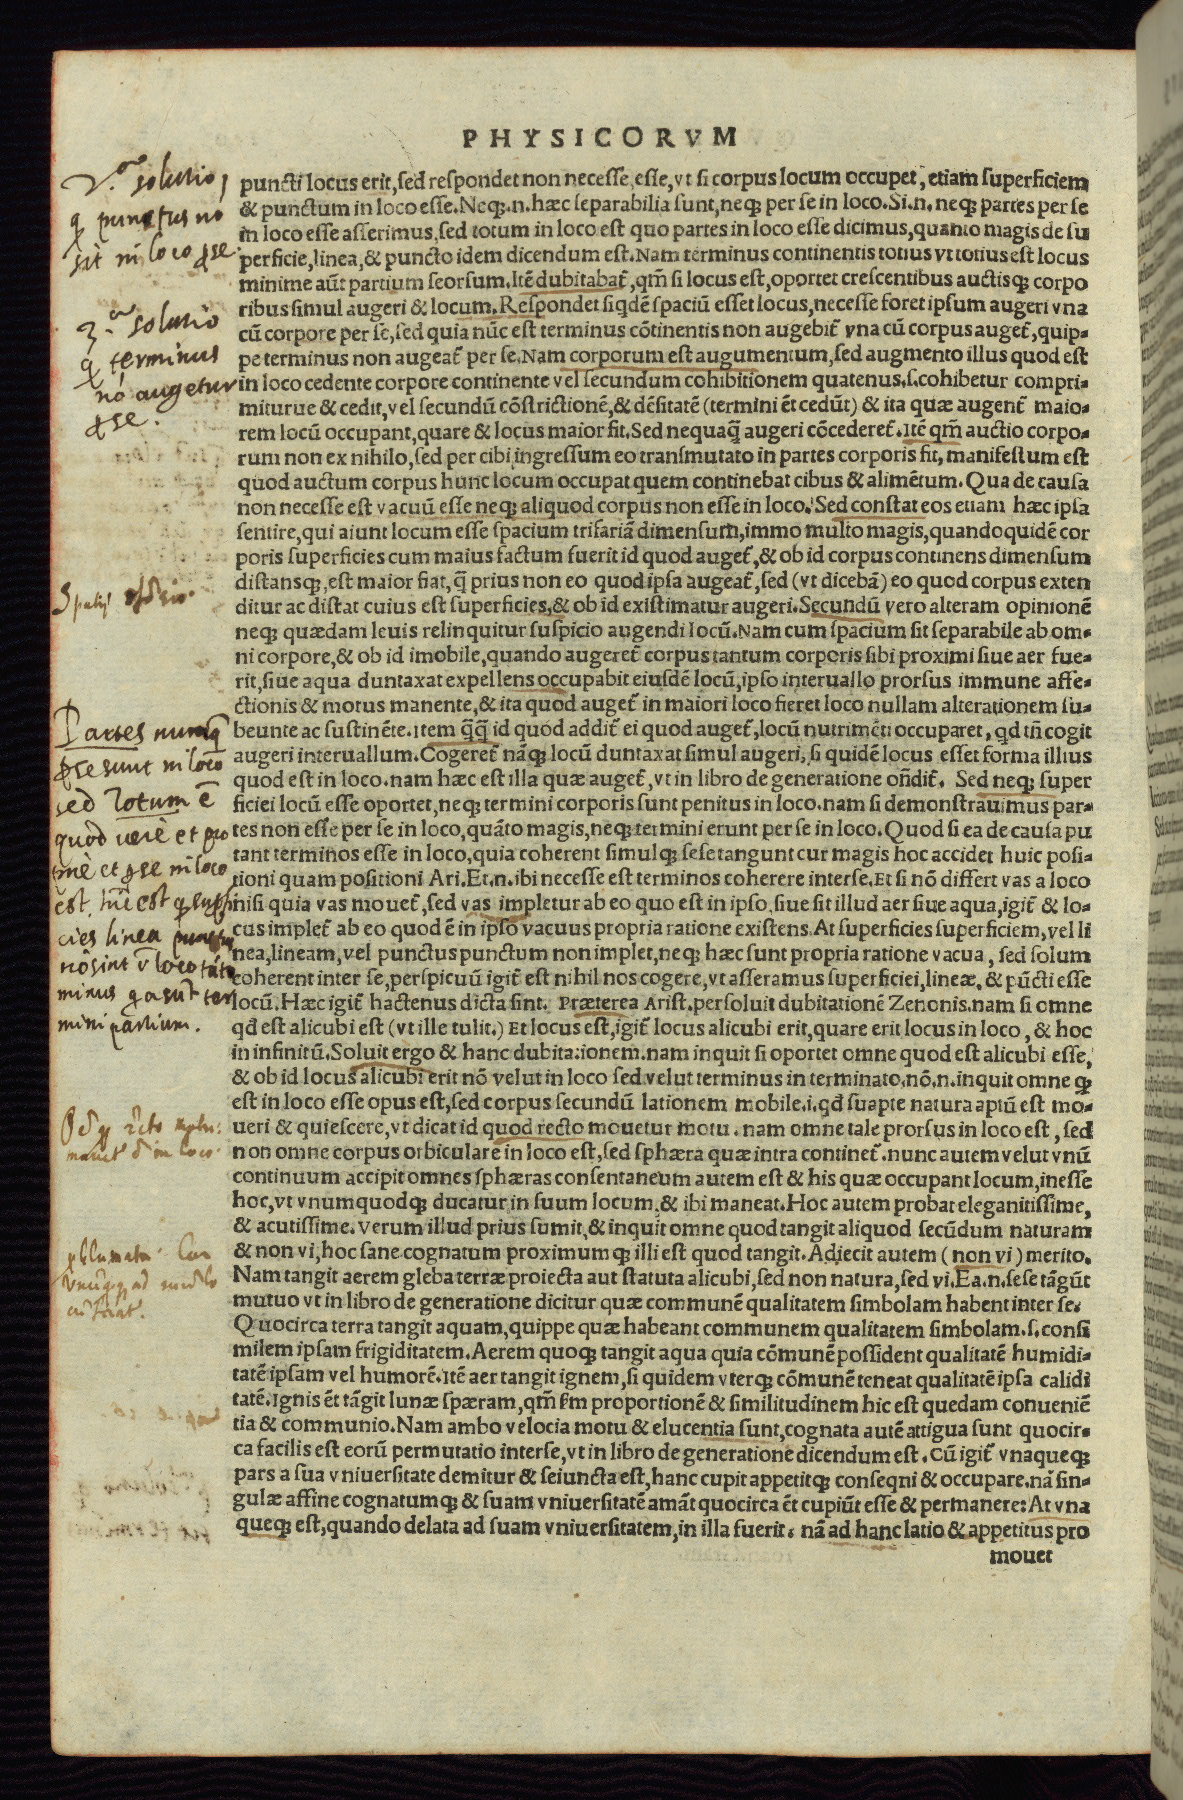 PHYSICORVM
puncti locus erit, sed respondet non necesse, esse, vt si corpus locum occupet, etiam superficiem
& punctum in loco esse. Neq;.n. hæc separabilia sunt, neq; per se in loco. Si.n. neq; partes per se
in loco esse asserimus, sed totum in loco est quo partes in loco esse dicimus, quanto magis de su
perficie, linea, & puncto idem dicendum est. Nam terminus continentis totius vt totius est locus
minime aūt partium seorsum. Itē dubitabat̃, qm̃ si locus est, oportet crescentibus auctisq; corpo
ribus simul augeri & locum. Respondet siqdē spaciū esset locus, necesse foret ipsum augeri vna
cū corpore per se, sed quia nūc est terminus cōtinentis non augebit̃ vna cū corpus auget̃, quip-
pe terminus non augeat̃ per se. Nam corporum est augumentum, sed augmento illus quod est
in loco cedente corpore continente vel secundum cohibitionem quatenus.s. cohibetur compri-
miturue & cedit, vel secundū cōstrictionē, & dēsitatē (termini ēt cedūt) & ita quæ augent̃ maio-
rem locū occupant, quare & locus maior fit. Sed nequaq̃ augeri cōcederet̃. Itē qm̃ auctio corpo-
rum non ex nihilo, sed per cibi ingressum eo transmutato in partes corporis fit, manifestum est
quod auctum corpus hunc locum occupat quem continebat cibus & alimētum. Qua de causa
non necesse est vacuū esse neq; aliquod corpus non esse in loco. Sed constat eos etiam hæc ipsa
sentire, qui aiunt locum esse spacium trifariā dimensum, immo multo magis, quandoquidē cor
poris superficies cum maius factum fuerit id quod auget̃, & ob id corpus continens dimensum
distansq;, est maior fiat, q̃ prius non eo quod ipsa augeat̃, sed (vt dicebā) eo quod corpus exten
ditur ac distat cuius est superficies, & ob id existimatur augeri. Secundū vero alteram opinionē
neq; quædam leuis relinquitur suspicio augendi locū. Nam cum spacium sit separabile ab om-
ni corpore, & ob id imobile, quando augeret̃ corpus tantum corporis sibi proximi siue aer fue-
rit, siue aqua duntaxat expellens occupabit eiusdē locū, ipso interuallo prorsus immune affe-
ctionis & motus manente, & ita quod auget̃ in maiori loco fieret loco nullam alterationem su-
beunte ac sustinēte. item q̃q̃ id quod addit̃ ei quod auget̃, locū nutrimēti occuparet, qd tñ cogit
augeri interuallum. Cogeret̃ nāq; locū duntaxat simul augeri, si quidē locus esset forma illius
quod est in loco. nam hæc est illa quæ auget̃, vt in libro de generatione oñdit̃. Sed neq; super
ficiei locū esse oportet, neq; termini corporis sunt penitus in loco. nam si demonstrauimus par-
tes non esse per se in loco, quāto magis, neq; termini erunt per se in loco. Quod si ea de causa pu
tant terminos esse in loco, quia coherent simulq; sese tangunt cur magis hoc accidet huic posi-
tioni quam positioni Ari. Et.n. ibi necesse est terminos coherere interse. Et si nō differt vas a loco
nisi quia vas mouet̃, sed vas impletur ab eo quo est in ipso, siue sit illud aer siue aqua, igit̃ & lo-
cus implet̃ ab eo quod ē in ipso vacuus propria ratione existens. At superficies superficiem, vel li
nea, lineam, vel punctus punctum non implet, neq; hæc sunt propria ratione vacua, sed solum
coherent inter se, perspicuū igit̃ est nihil nos cogere, vt asseramus superficiei, lineæ, & pūcti esse
locū. Hæc igit̃ hactenus dicta sint. Præterea Arist. persoluit dubitationē Zenonis. nam si omne
qd est alicubi est (vt ille tulit.) Et locus est, igit̃ locus alicubi erit, quare erit locus in loco, & hoc
in infinitū. Soluit ergo & hanc dubitationem. nam inquit si oportet omne quod est alicubi esse,
& ob id locus alicubi erit nō velut in loco sed velut terminus in terminato. nō.n. inquit omne q;
est in loco esse opus est, sed corpus secundū lationem mobile.i. qd suapte natura aptū est mo-
ueri & quiescere, vt dicat id quod recto mouetur motu. nam omne tale prorsus in loco est, sed
non omne corpus orbiculare in loco est, sed sphæra quæ intra continet̃. nunc autem velut vnū
continuum accipit omnes sphæras consentaneum autem est & his quæ occupant locum, inesse
hoc, vt vnumquodq; ducatur in suum locum, & ibi maneat. Hoc autem probat elegantissime,
& acutissime. verum illud prius sumit, & inquit omne quod tangit aliquod secūdum naturam
& non vi, hoc sane cognatum proximumq; illi est quod tangit. Adiecit autem (non vi) merito.
Nam tangit aerem gleba terræ proiecta aut statuta alicubi, sed non natura, sed vi. Ea.n. sese tāgūt
mutuo vt in libro de generatione dicitur quæ communē qualitatem simbolam habent inter se.
Quocirca terra tangit aquam, quippe quæ habeant communem qualitatem simbolam.s. consi
milem ipsam frigiditatem. Aerem quoq; tangit aqua quia cōmunē possident qualitatē humidi-
tatē ipsam vel humorē. Itē aer tangit ignem, si quidem vterq; cōmunē teneat qualitatē ipsa calidi
tatē. Ignis ēt tāgit lunæ spæram, qm̃ fm proportionē & similitudinem hic est quedam conueniē
tia & communio. Nam ambo velocia motu & elucentia sunt, cognata autē attigua sunt quocir-
ca facilis est eorū permutatio interse, vt in libro de generatione dicendum est. Cū igit̃ vnaqueq;
pars a sua vniuersitate demitur & seiuncta est, hanc cupit appetitq; conseqni & occupare. nā sin-
gulæ affine cognatumq; & suam vniuersitatē amāt quocirca ēt cupiūt esse & permanere: At vna
queq; est, quando delata ad suam vniuersitatem, in illa fuerit. nā ad hanc latio & appetitus pro
mouet
2.ª solutio,
q punctus no
sit in loco p se.
3.ª solutio
q terminus
nō augetur
p se.
Partes nunq̃
p se sunt in loco
sed Totum ē
quod uerè et pro
et p se in loco
est.
cies linea punctu
nō sint
minus
mini partium.